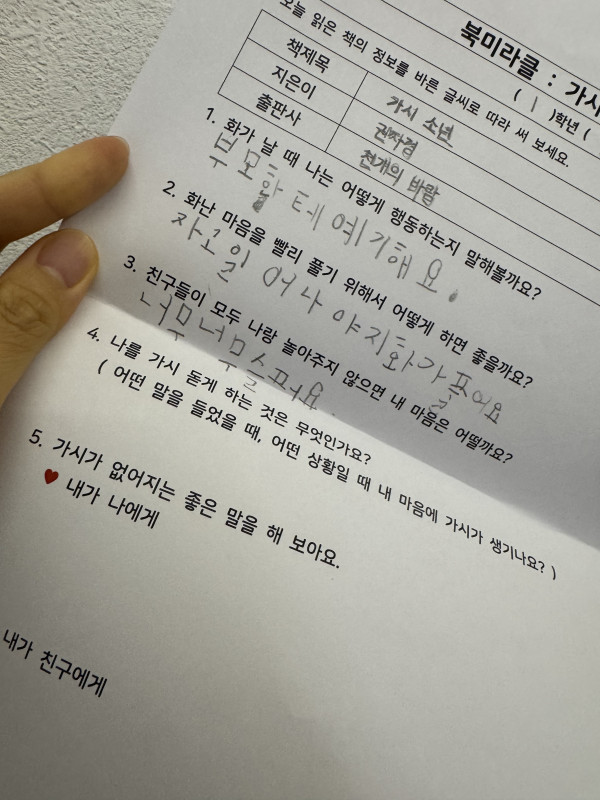 북미라클 : 가시
( 1 )학년 (
오늘 읽은 책의 정보를 바른 글씨로 따라 써 보세요.
책제목 가시 소년
지은이 권자경
출판사 천개의 바람
1. 화가 날 때 나는 어떻게 행동하는지 말해볼까요?
부모한테 예기해요.
2. 화난 마음을 빨리 풀기 위해서 어떻게 하면 좋을까요?
자고일어나야지화가풀어요
3. 친구들이 모두 나랑 놀아주지 않으면 내 마음은 어떨까요?
너무너무슬퍼요.
4. 나를 가시 돋게 하는 것은 무엇인가요?
( 어떤 말을 들었을 때, 어떤 상황일 때 내 마음에 가시가 생기나요? )
5. 가시가 없어지는 좋은 말을 해 보아요.
♥ 내가 나에게
내가 친구에게